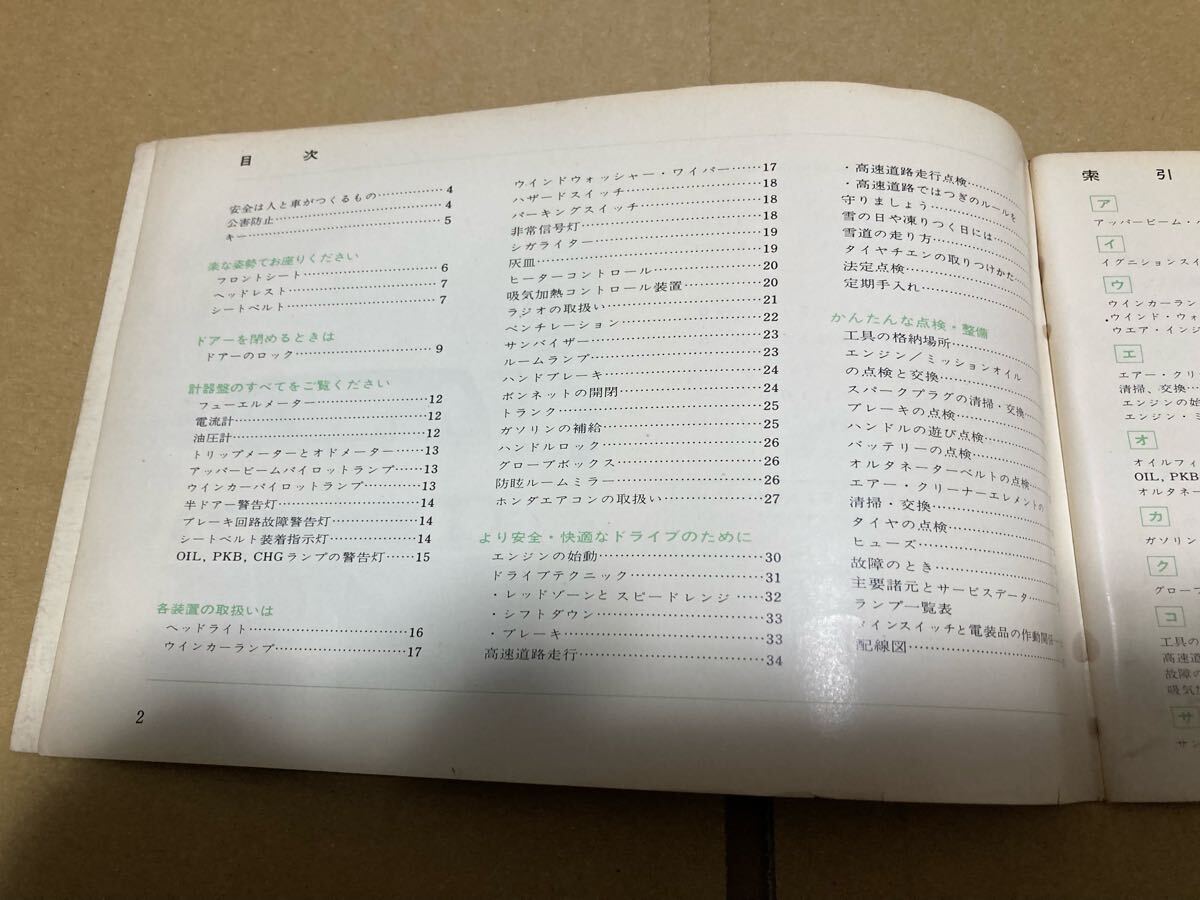 目次
安全は人と車がつくるもの…………4
公害防止…………4
キー…………5
楽な姿勢でお座りください
フロントシート…………6
ヘッドレスト…………7
シートベルト…………7
ドアーを閉めるときは
ドアーのロック…………9
計器盤のすべてをご覧ください
フューエルメーター…………12
電流計…………12
油圧計…………12
トリップメーターとオドメーター…………13
アッパービームパイロットランプ…………13
ウインカーパイロットランプ…………13
半ドアー警告灯…………14
ブレーキ回路故障警告灯…………14
シートベルト装着指示灯…………14
OIL, PKB, CHGランプの警告灯……15
各装置の取扱いは
ヘッドライト…………16
ウインカーランプ…………17
ウインドウォッシャー・ワイパー……17
ハザードスイッチ…………18
パーキングスイッチ…………18
非常信号灯…………18
シガライター…………19
灰皿…………19
ヒーターコントロール…………20
吸気加熱コントロール装置…………20
ラジオの取扱い…………21
ベンチレーション…………22
サンバイザー…………23
ルームランプ…………23
ハンドブレーキ…………24
ボンネットの開閉…………24
トランク…………25
ガソリンの補給…………25
ハンドルロック…………26
グローブボックス…………26
防眩ルームミラー…………26
ホンダエアコンの取扱い…………27
より安全・快適なドライブのために
エンジンの始動…………30
ドライブテクニック…………31
・レッドゾーンと スピードレンジ……32
・シフトダウン…………33
・ブレーキ…………33
高速道路走行…………34
・高速道路走行点検…………
・高速道路ではつぎのルールを
守りましょう…………
雪の日や凍りつく日には…………
雪道の走り方…………
タイヤチエンの取りつけかた…………
法定点検…………
定期手入れ…………
かんたんな点検・整備
工具の格納場所…………
エンジン／ミッションオイル
の点検と交換…………
スパークプラグの清掃・交換…………
ブレーキの点検…………
ハンドルの遊び点検…………
バッテリーの点検…………
オルタネーターベルトの点検…………
エアー・クリーナーエレメントの
清掃・交換…………
タイヤの点検…………
ヒューズ…………
故障のとき…………
主要諸元とサービスデータ…………
ランプ一覧表
メインスイッチと電装品の作動関係…
配線図…………
2
索引
ア
アッパービーム・
イ
イグニションスイ
ウ
ウインカーラン
ウインド・ウォ
ウエア・イン
エ
エアー・クリー
清掃、交換…
エンジンの始
エンジン・
オ
オイルフィ
OIL, PKB
オルタネー
カ
ガソリン
ク
グロー
コ
工具の
高速道
故障の
吸気
サ
サン